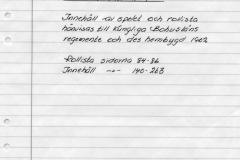 Innehåll av spelet och rollista
hänvisas till Kungliga Bohusläns
regemente och des hembygd 1902
Rollista siderna 84-86
Innehåll -"- 140-263